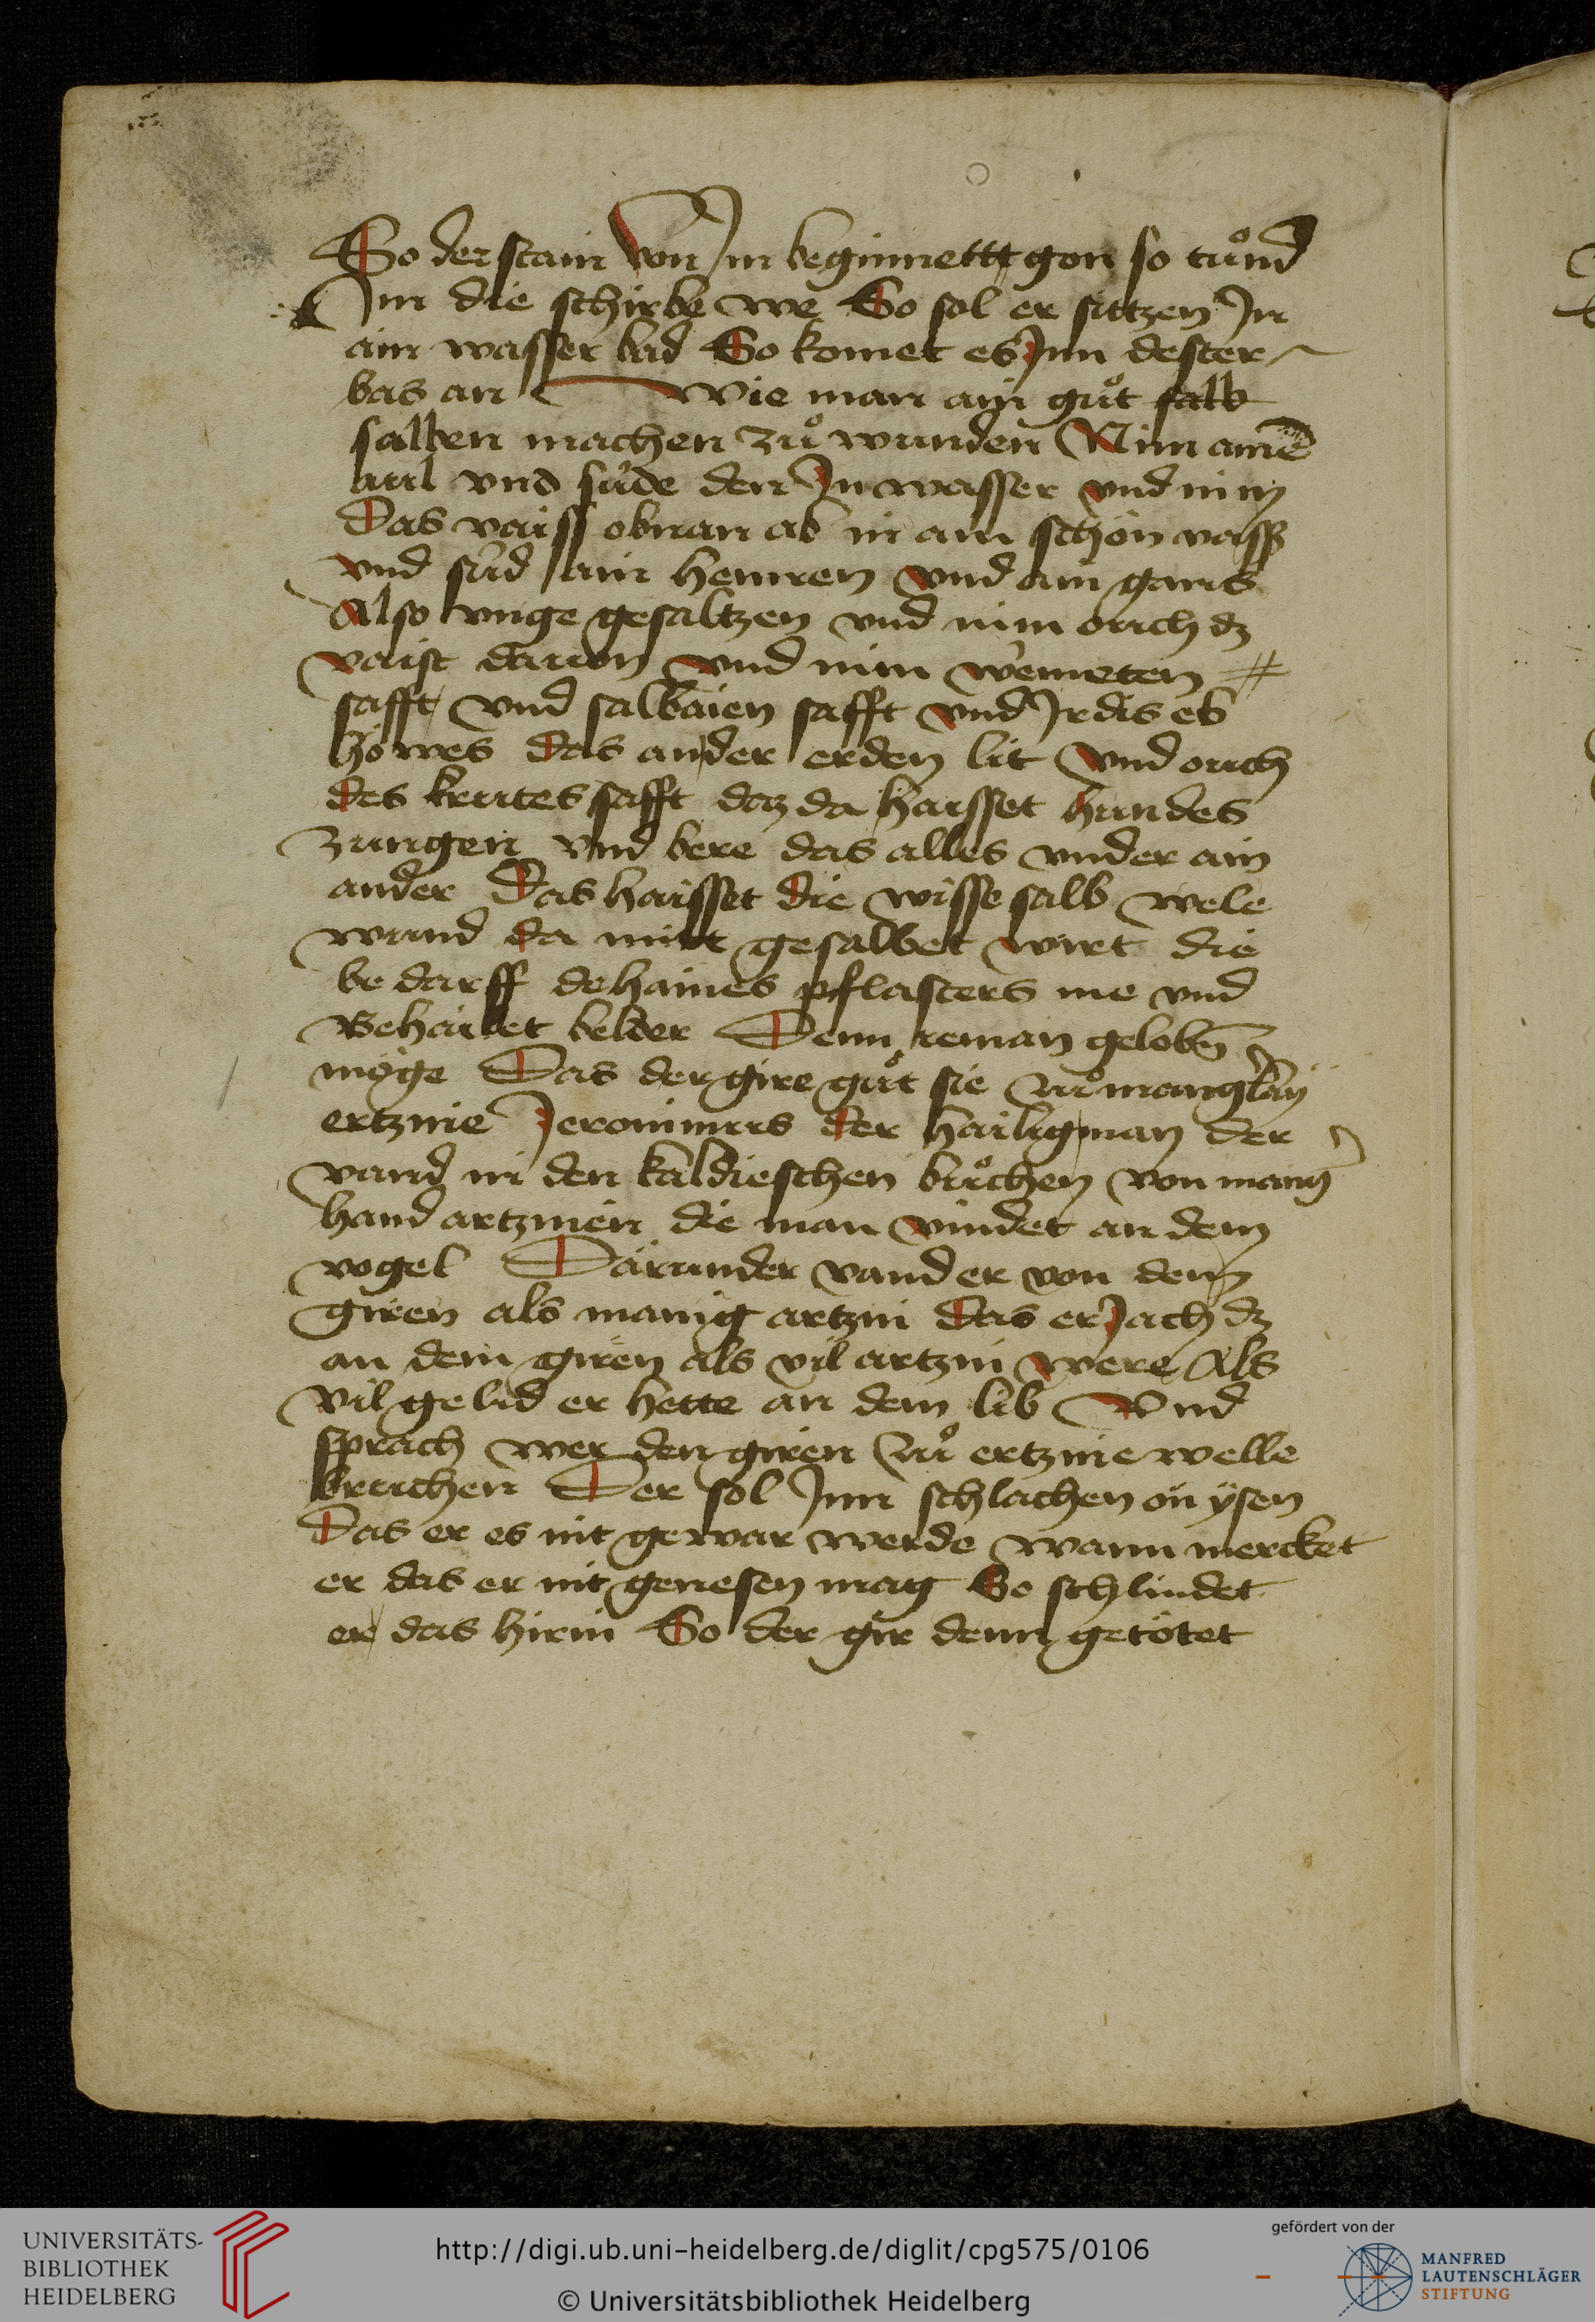 So der stain von Im beginnettt gon so tuͦnd
Im die schirbe we So sol er sittzen In
ain wasser bad So komet es Jnn dester
bas an Wie man ain guͦt salb
salben machen zuͦ wunden Nim ainē
und süde den In wasser vnd nim
Das vaiss obnan ab in ain schön vass
vnd süd ain hennen vnd ain gans
Also vnge gesaltzen vnd nim ouch dz
vaist dauon vnd nim wermeten
safft vnd salbaien safft vnd Irdis eb
höwes das an der erden lit vnd ouch
des krutes safft daz da haisset hundes
zungen vnd bere das alles vnder ain
ander Das haisset die wisse salb wele
wund da mitt gesalbet wirt die
be darff dehaines pflasters me vnd
Behailet belder Denn ieman gelobn̄
möge Das der gire guͦt sie zuͦ mangˀlaÿ
ertznie Jeronimus der hailig man der
vand in den kaldieschen buͤchen von mangˀ
hand artznien die man vindet an dem
vogel Darunder vand er von dem
giren als manig artzni das er Jach dz
an dem giren als vil artzni were Als
vil gelid er hette an dem lib Vnd
sprach wer den giren zuͦ ertznie welle
bruchen Der sol Jnn schlachen on ÿsen
Das er es nit gewar werde wann mercket
er das er nit genesen mag So schlindet
er das hirni So der gir denn getötet
UNIVERSITÄTS-
BIBLIOTHEK
HEIDELBERG
http://digi.ub.uni-heidelberg.de/diglit/cpg575/0106
© Universitätsbibliothek Heidelberg
gefördert von der
MANFRED
LAUTENSCHLÄGER
STIFTUNG